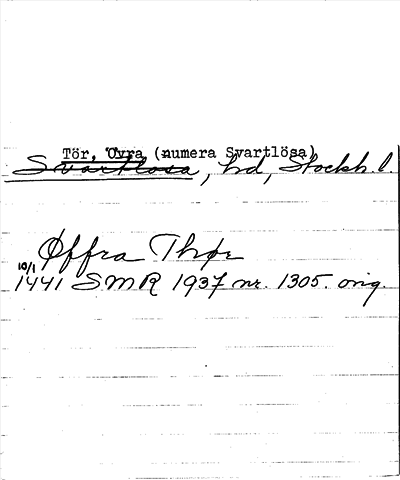 Tör, Övra (numera Svartlösa)
Svartlösa, hd, Stockh. l.
Øffra Thør
10/1
1441 SMR 1937 nr. 1305. orig.